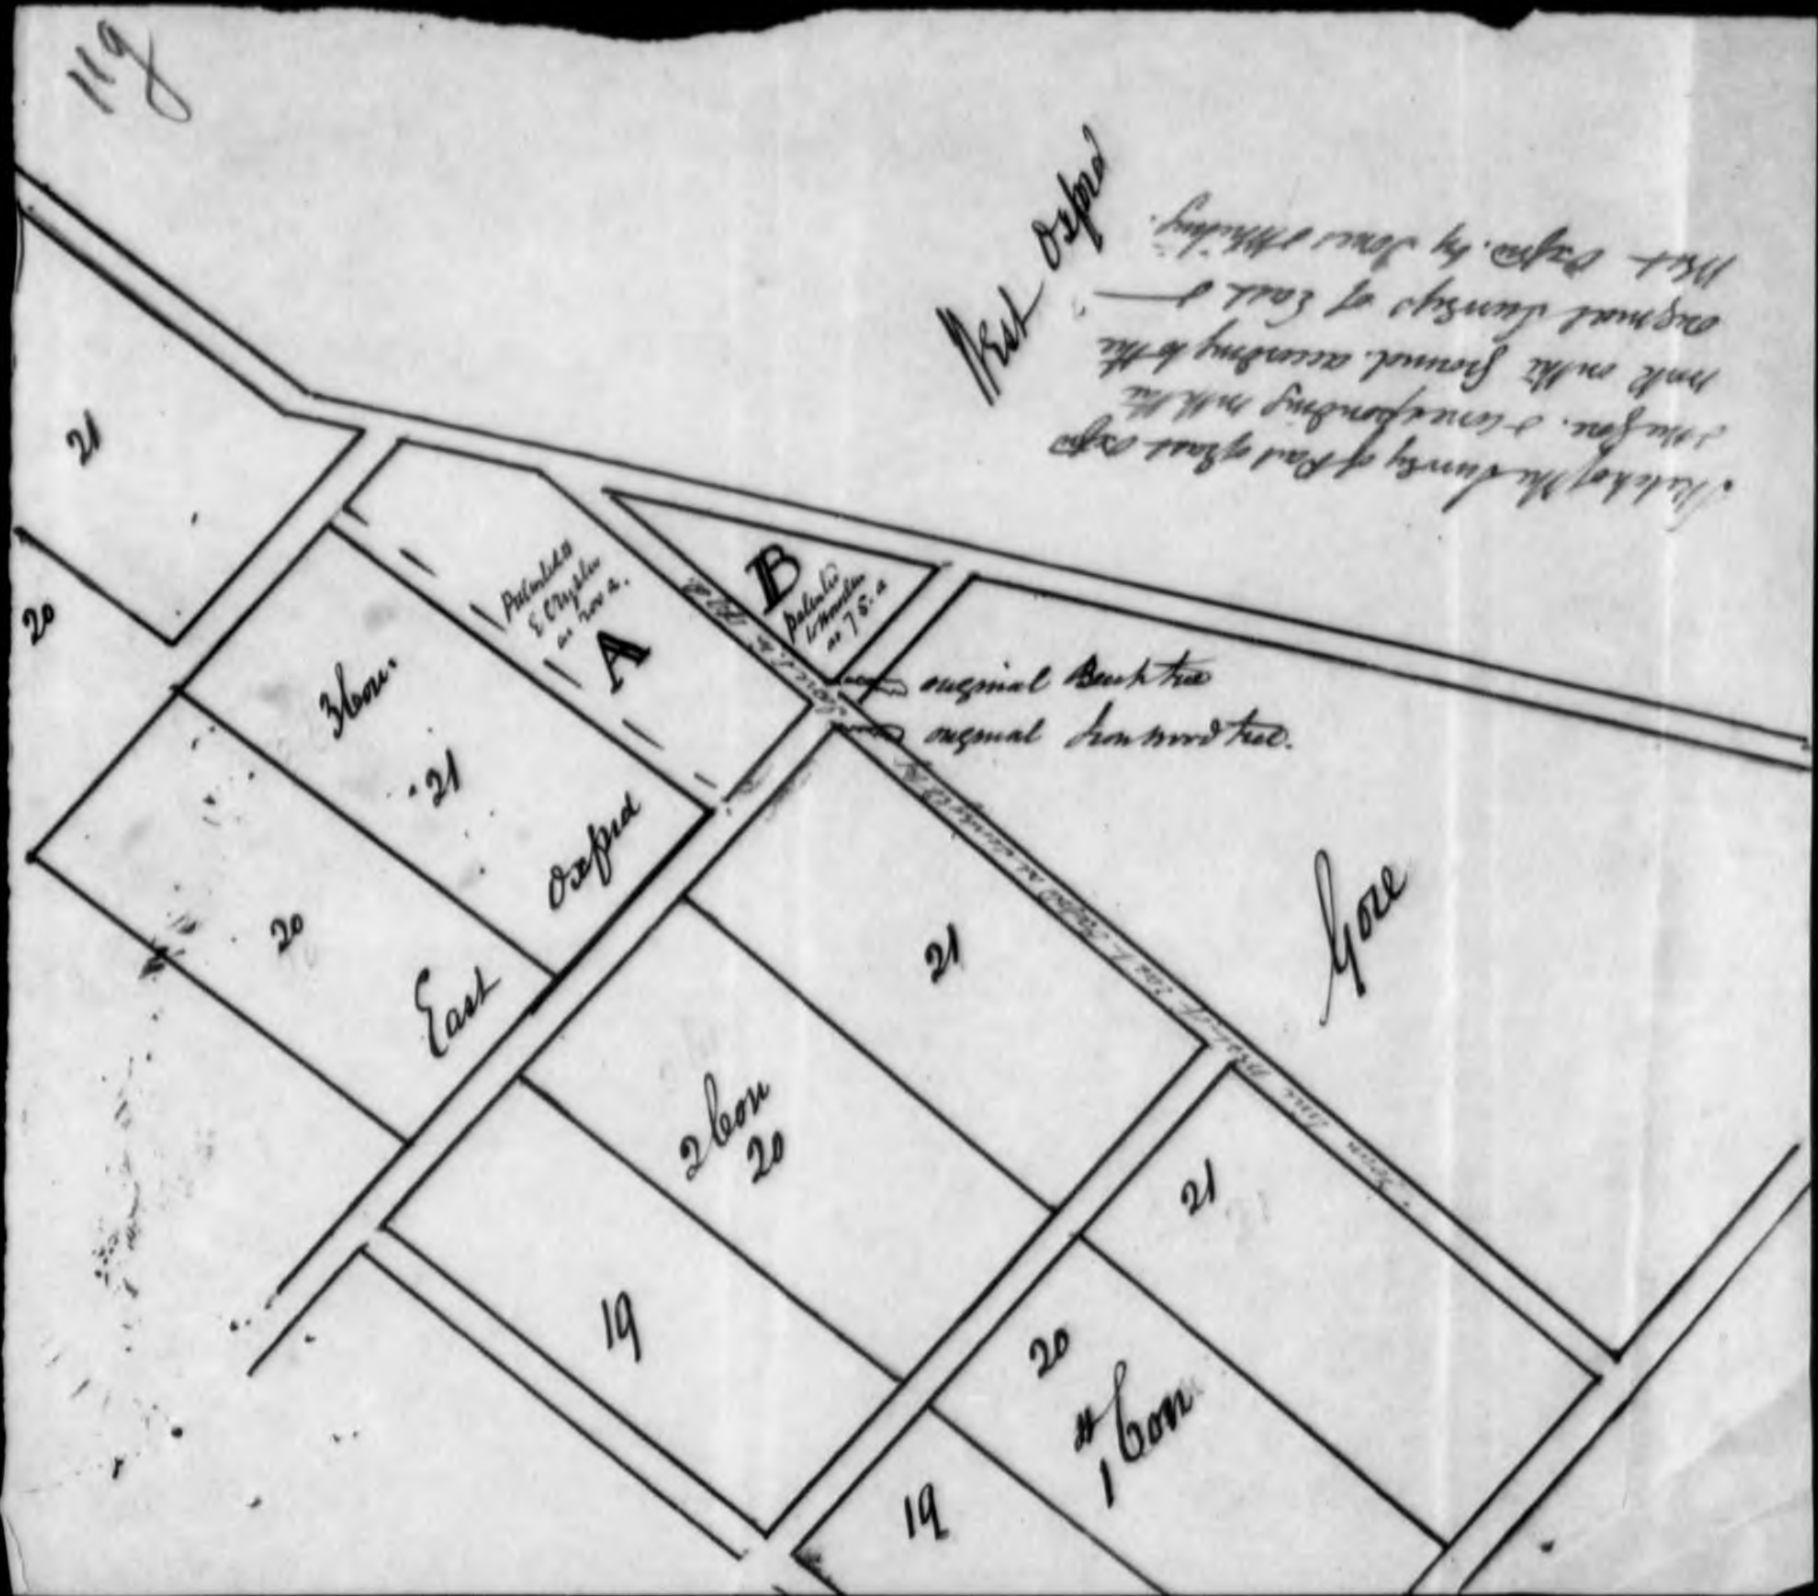 119
West Oxford
Sketch of the Survey of Part of East Oxford
& the Gore. & Corresponding with the
work on the ground according to the
original Surveys of East &
West Oxford. by Jones &
21
20
Patented to
E. C.
as 200 a.
A
B
patented
as 75. a
original Beech tree
original Ironwood tree.
3 Con.
21
20
East Oxford
Gore
21
2 Con
20
19
21
20
1 Con
19